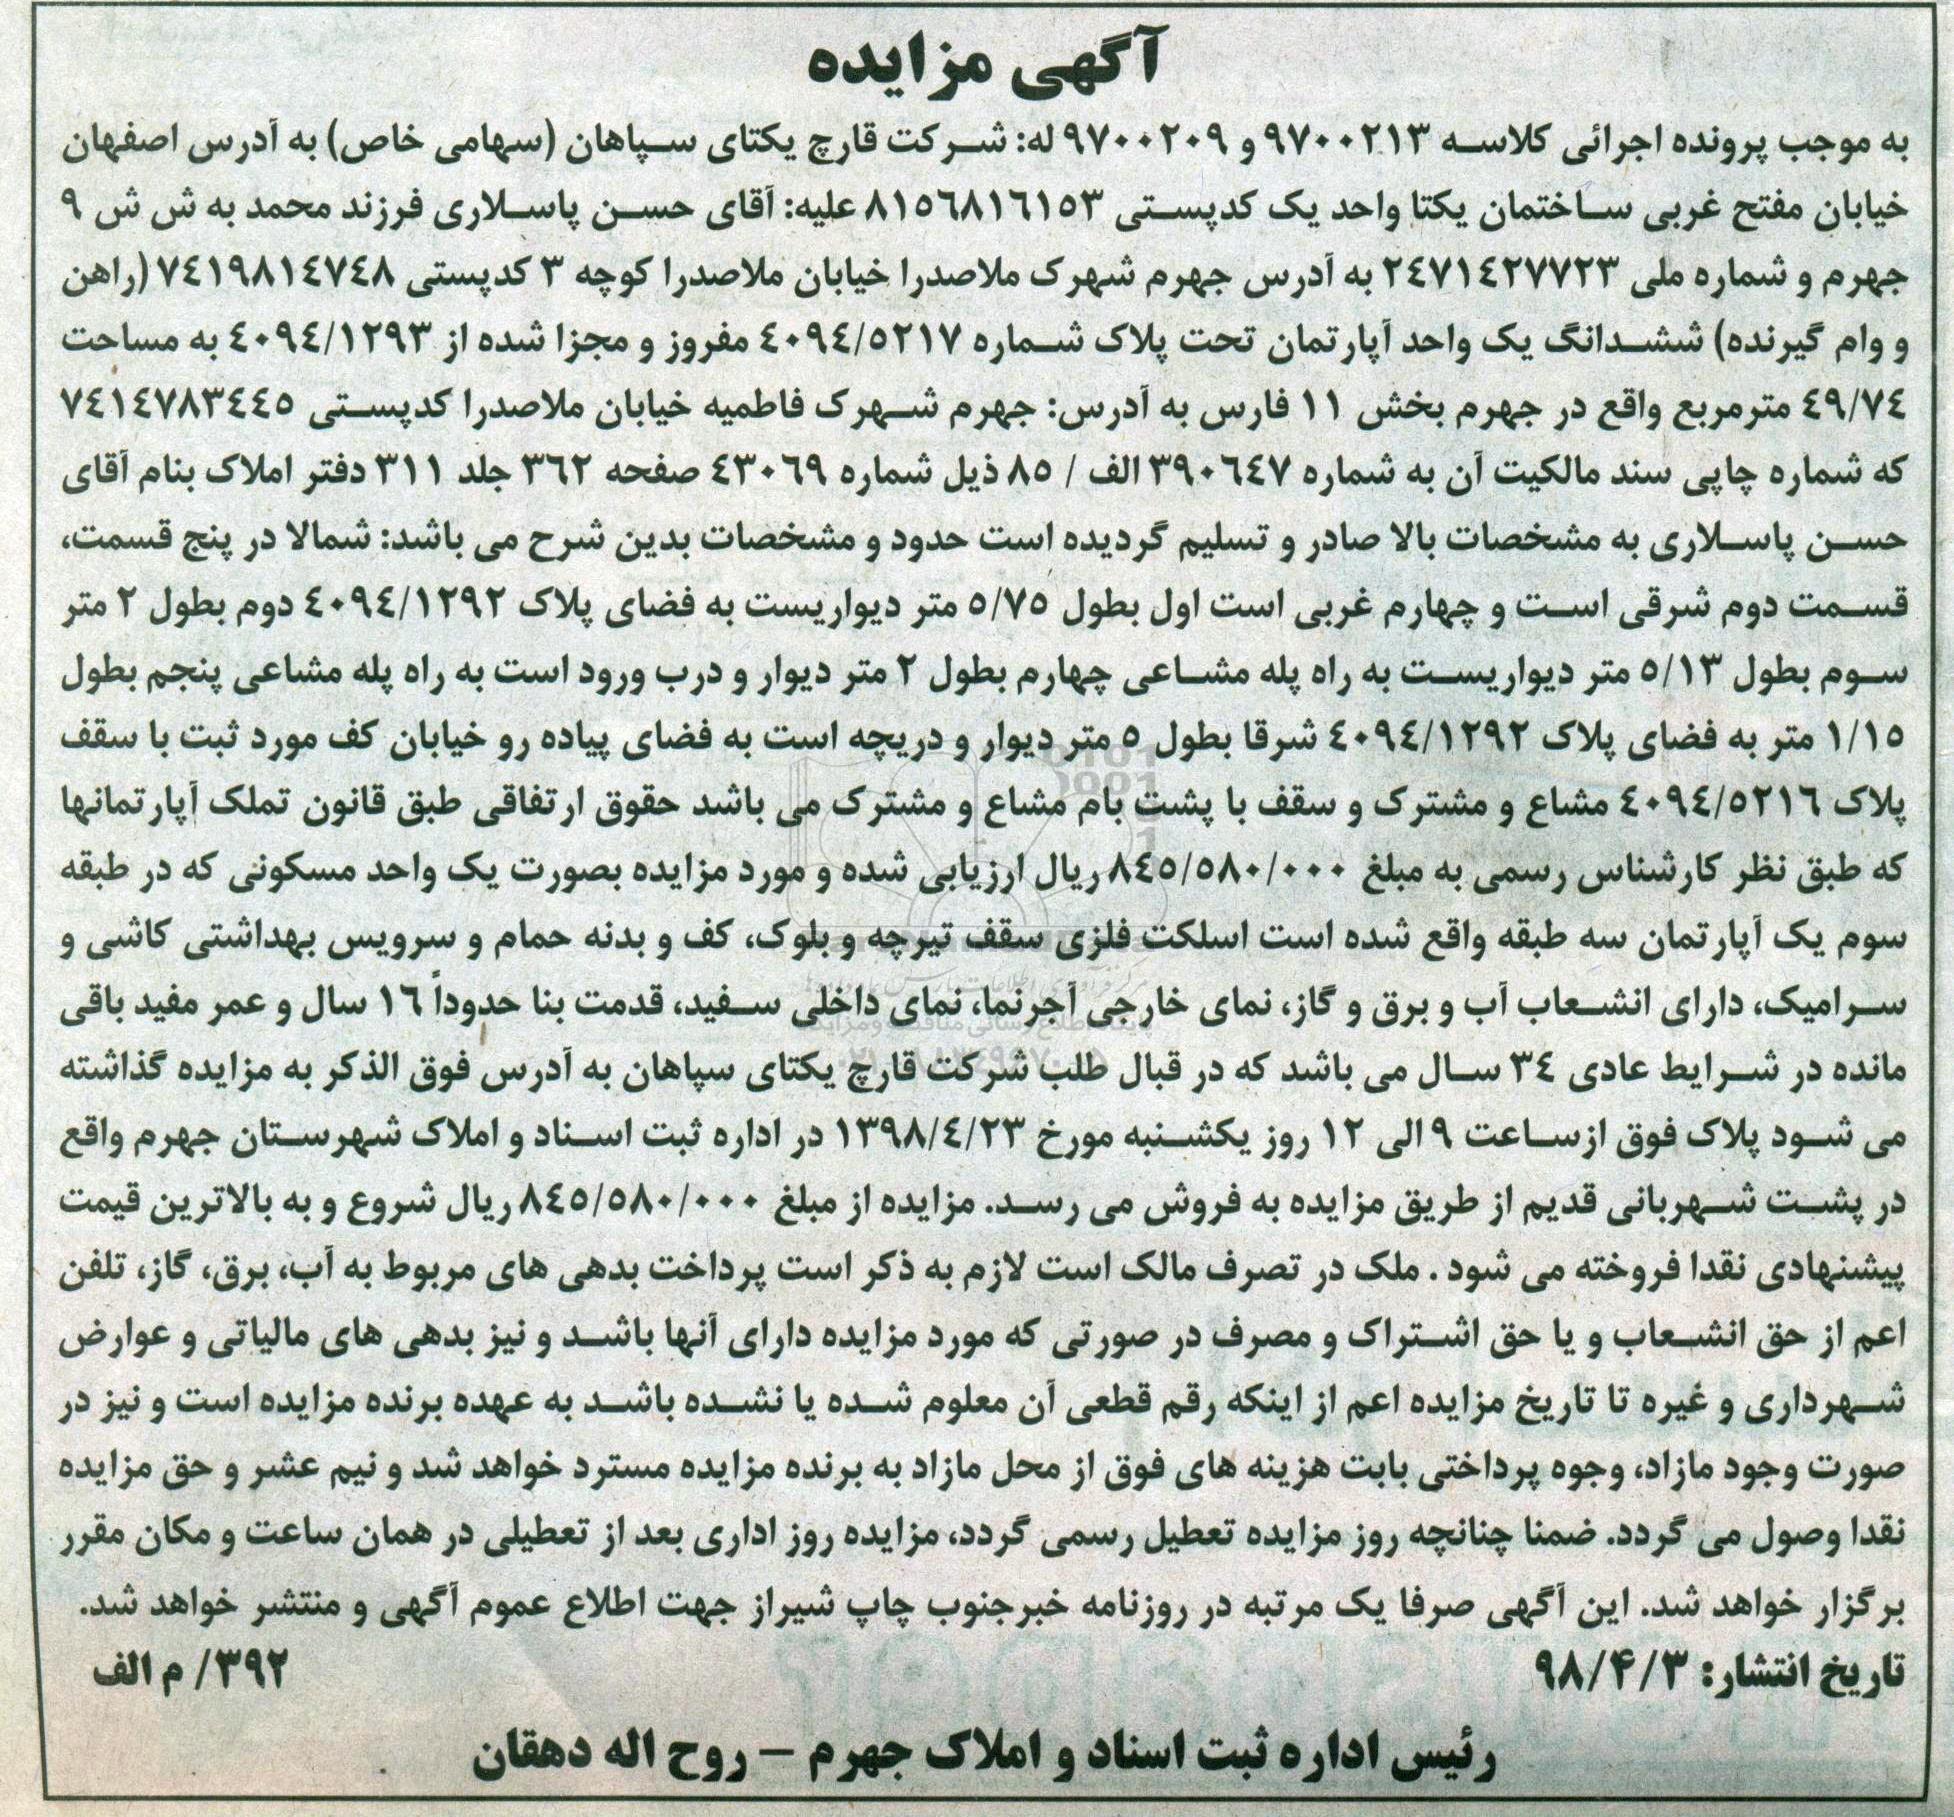 آگهی مزایده
به موجب پرونده اجرائی کلاسه ۹۷۰۰۲۱۳ و ۹۷۰۰۲۰۹ له: شرکت قارچ یکتای سپاهان (سهامی خاص) به آدرس اصفهان
خیابان مفتح غربی ساختمان یکتا واحد یک کدپستی ۸۱۵۶۸۱۶۱۵۳ علیه: آقای حسن پاسلاری فرزند محمد به ش ش ۹
جهرم و شماره ملی ۲۴۷۱۴۲۷۷۲۳ به آدرس جهرم شهرک ملاصدرا خیابان ملاصدرا کوچه ۳ کدپستی ۷۴۱۹۸۱۴۷۴۸ (راهن
و وام گیرنده) ششدانگ یک واحد آپارتمان تحت پلاک شماره ۴۰۹۴/۵۲۱۷ مفروز و مجزا شده از ۴۰۹۴/۱۲۹۳ به مساحت
۴۹/۷۴ مترمربع واقع در جهرم بخش ۱۱ فارس به آدرس: جهرم شهرک فاطمیه خیابان ملاصدرا کدپستی ۷۴۱۴۷۸۳۴۴۵
که شماره چاپی سند مالکیت آن به شماره ۳۹۰۶۴۷ الف / ۸۵ ذیل شماره ۴۳۰۶۹ صفحه ۳۶۲ جلد ۳۱۱ دفتر املاک بنام آقای
حسن پاسلاری به مشخصات بالا صادر و تسلیم گردیده است حدود و مشخصات بدین شرح می باشد: شمالا در پنج قسمت،
قسمت دوم شرقی است و چهارم غربی است اول بطول ۵/۷۵ متر دیواریست به فضای پلاک ۴۰۹۴/۱۲۹۲ دوم بطول ۲ متر
سوم بطول ۵/۱۳ متر دیواریست به راه پله مشاعی چهارم بطول ۲ متر دیوار و درب ورود است به راه پله مشاعی پنجم بطول
۱/۱۵ متر به فضای پلاک ۴۰۹۴/۱۲۹۲ شرقا بطول ۵ متر دیوار و دریچه است به فضای پیاده رو خیابان کف مورد ثبت با سقف
پلاک ۴۰۹۴/۵۲۱۶ مشاع و مشترک و سقف با پشت بام مشاع و مشترک می باشد حقوق ارتفاقی طبق قانون تملک آپارتمانها
که طبق نظر کارشناس رسمی به مبلغ ۸۴۵/۵۸۰/۰۰۰ ریال ارزیابی شده و مورد مزایده بصورت یک واحد مسکونی که در طبقه
سوم یک آپارتمان سه طبقه واقع شده است اسلکت فلزی سقف تیرچه و بلوک، کف و بدنه حمام و سرویس بهداشتی کاشی و
سرامیک، دارای انشعاب آب و برق و گاز، نمای خارجی آجرنما، نمای داخلی سفید، قدمت بنا حدوداً ۱۶ سال و عمر مفید باقی
مانده در شرایط عادی ۳۴ سال می باشد که در قبال طلب شرکت قارچ یکتای سپاهان به آدرس فوق الذکر به مزایده گذاشته
می شود پلاک فوق ازساعت ۹ الی ۱۲ روز یکشنبه مورخ ۱۳۹۸/۴/۲۳ در اداره ثبت اسناد و املاک شهرستان جهرم واقع
در پشت شهربانی قدیم از طریق مزایده به فروش می رسد. مزایده از مبلغ ۸۴۵/۵۸۰/۰۰۰ ریال شروع و به بالاترین قیمت
پیشنهادی نقدا فروخته می شود . ملک در تصرف مالک است لازم به ذکر است پرداخت بدهی های مربوط به آب، برق، گاز، تلفن
اعم از حق انشعاب و یا حق اشتراک و مصرف در صورتی که مورد مزایده دارای آنها باشد و نیز بدهی های مالیاتی و عوارض
شهرداری و غیره تا تاریخ مزایده اعم از اینکه رقم قطعی آن معلوم شده یا نشده باشد به عهده برنده مزایده است و نیز در
صورت وجود مازاد، وجوه پرداختی بابت هزینه های فوق از محل مازاد به برنده مزایده مسترد خواهد شد و نیم عشر و حق مزایده
نقدا وصول می گردد. ضمنا چنانچه روز مزایده تعطیل رسمی گردد، مزایده روز اداری بعد از تعطیلی در همان ساعت و مکان مقرر
برگزار خواهد شد. این آگهی صرفا یک مرتبه در روزنامه خبرجنوب چاپ شیراز جهت اطلاع عموم آگهی و منتشر خواهد شد.
تاریخ انتشار: ۹۸/۴/۳
۳۹۲/ م الف
رئیس اداره ثبت اسناد و املاک جهرم – روح اله دهقان